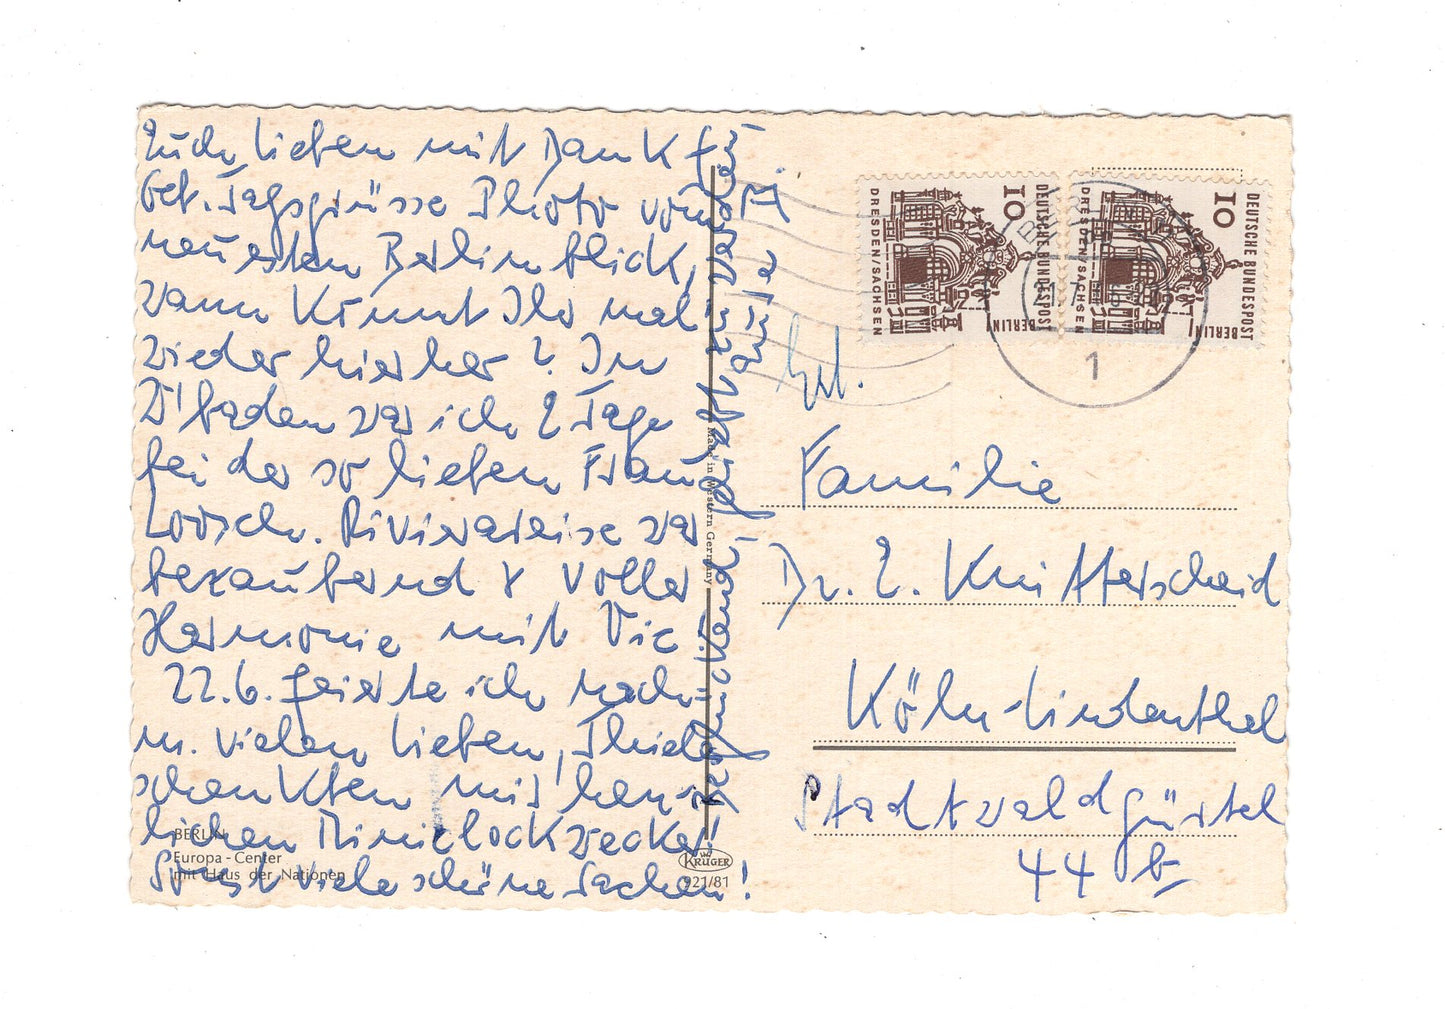 Euch Lieben mit Dank f.
Geb. Tagsgrüsse Photo vom
neuesten Berlinblick,
wann könnt Ihr mal
wieder hierher? In
bei der so lieben Frau
Loosch. Rivierareise war
bezaubernd & voller
Harmonie mit Vic
22.6. feierte ich nach-
m. vielen Lieben,
schenkten mir
lichen Miniclockwecker!
Sonst viele schöne Sachen!
BERLIN
Europa-Center
mit Haus der Nationen
Made in Western Germany
KRÜGER
921/81
10
DEUTSCHE BUNDESPOST
BERLIN
DRESDEN/SACHSEN
10
DEUTSCHE BUNDESPOST
BERLIN
DRESDEN/SACHSEN
BERLIN
21.7.
1
Familie
Dr. E. Knitterscheid
Köln-Lindenthal
Stadtwaldgürtel
44 b